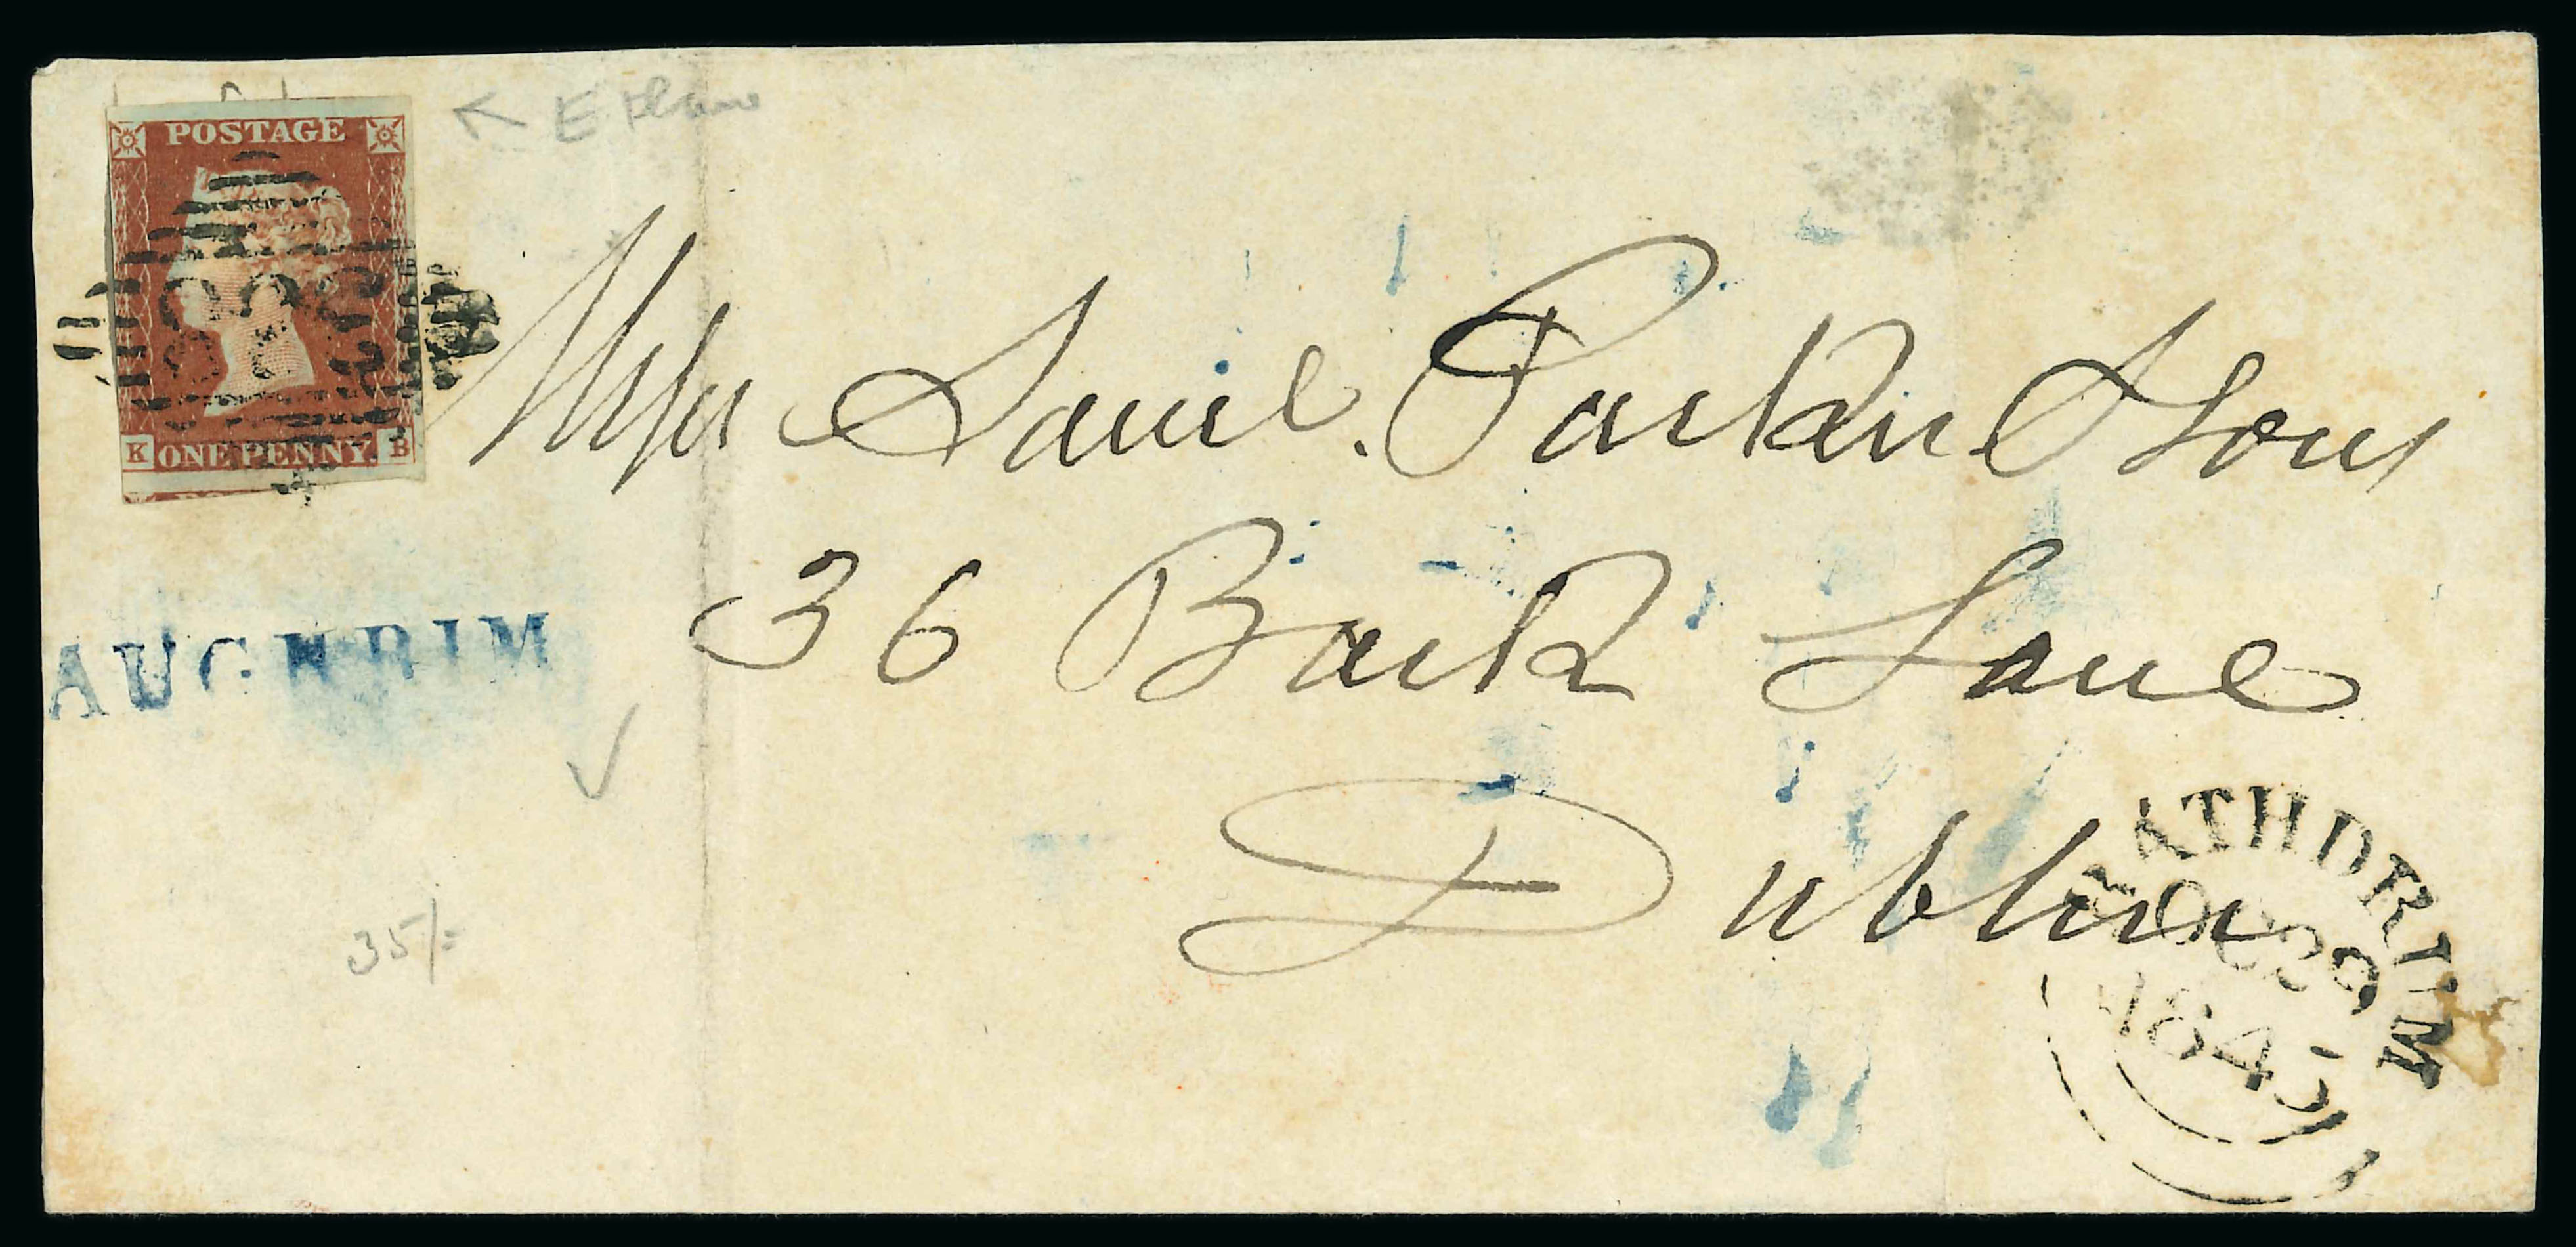 POSTAGE
K ONE PENNY. B
Messrs Saml. Parker & Sons
36 Back Lane
Dublin
AUGHRIM
RATHDRUM
OC 29
1845
35/=